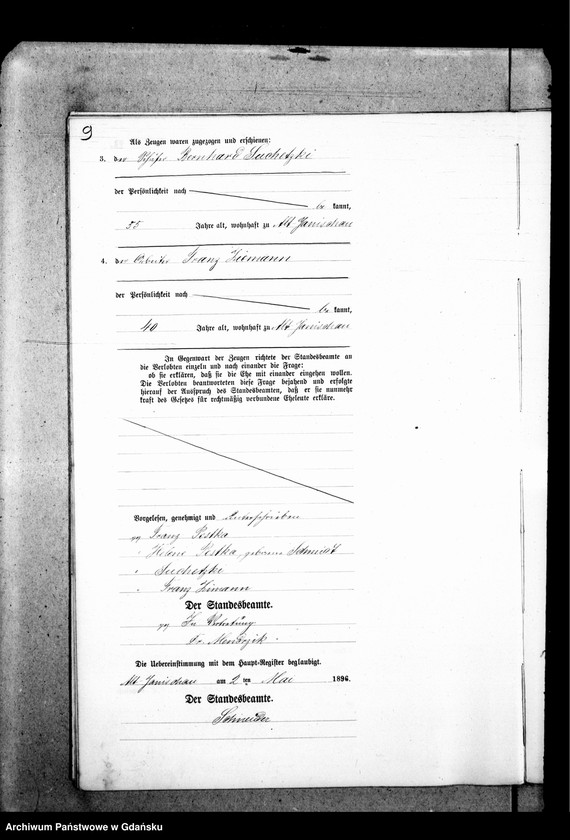 9
Als Zeugen waren zugezogen und erschienen:
3. der Schäfer Bernhard Suchetzki
der Persönlichkeit nach
be kannt,
55 Jahre alt, wohnhaft zu Alt Janischau
4. der Arbeiter Franz Ziemann
der Persönlichkeit nach
be kannt,
40 Jahre alt, wohnhaft zu Alt Janischau
In Gegenwart der Zeugen richtete der Standesbeamte an
die Verlobten einzeln und nach einander die Frage:
ob sie erklären, daß sie die Ehe mit einander eingehen wollen.
Die Verlobten beantworteten diese Frage bejahend und erfolgte
hierauf der Ausspruch des Standesbeamten, daß er sie nunmehr
kraft des Gesetzes für rechtmäßig verbundene Eheleute erkläre.
Vorgelesen, genehmigt und unterschrieben
gez. Franz Pestka
" Helene Pestka, geborene Schmidt
" Suchetzki
" Franz Zimann
Der Standesbeamte.
gez. In Vertretung
Fr.
Die Uebereinstimmung mit dem Haupt-Register beglaubigt.
Alt Janischau am 2 ten Mai 1896.
Der Standesbeamte.
Schneider
Archiwum Państwowe w Gdańsku